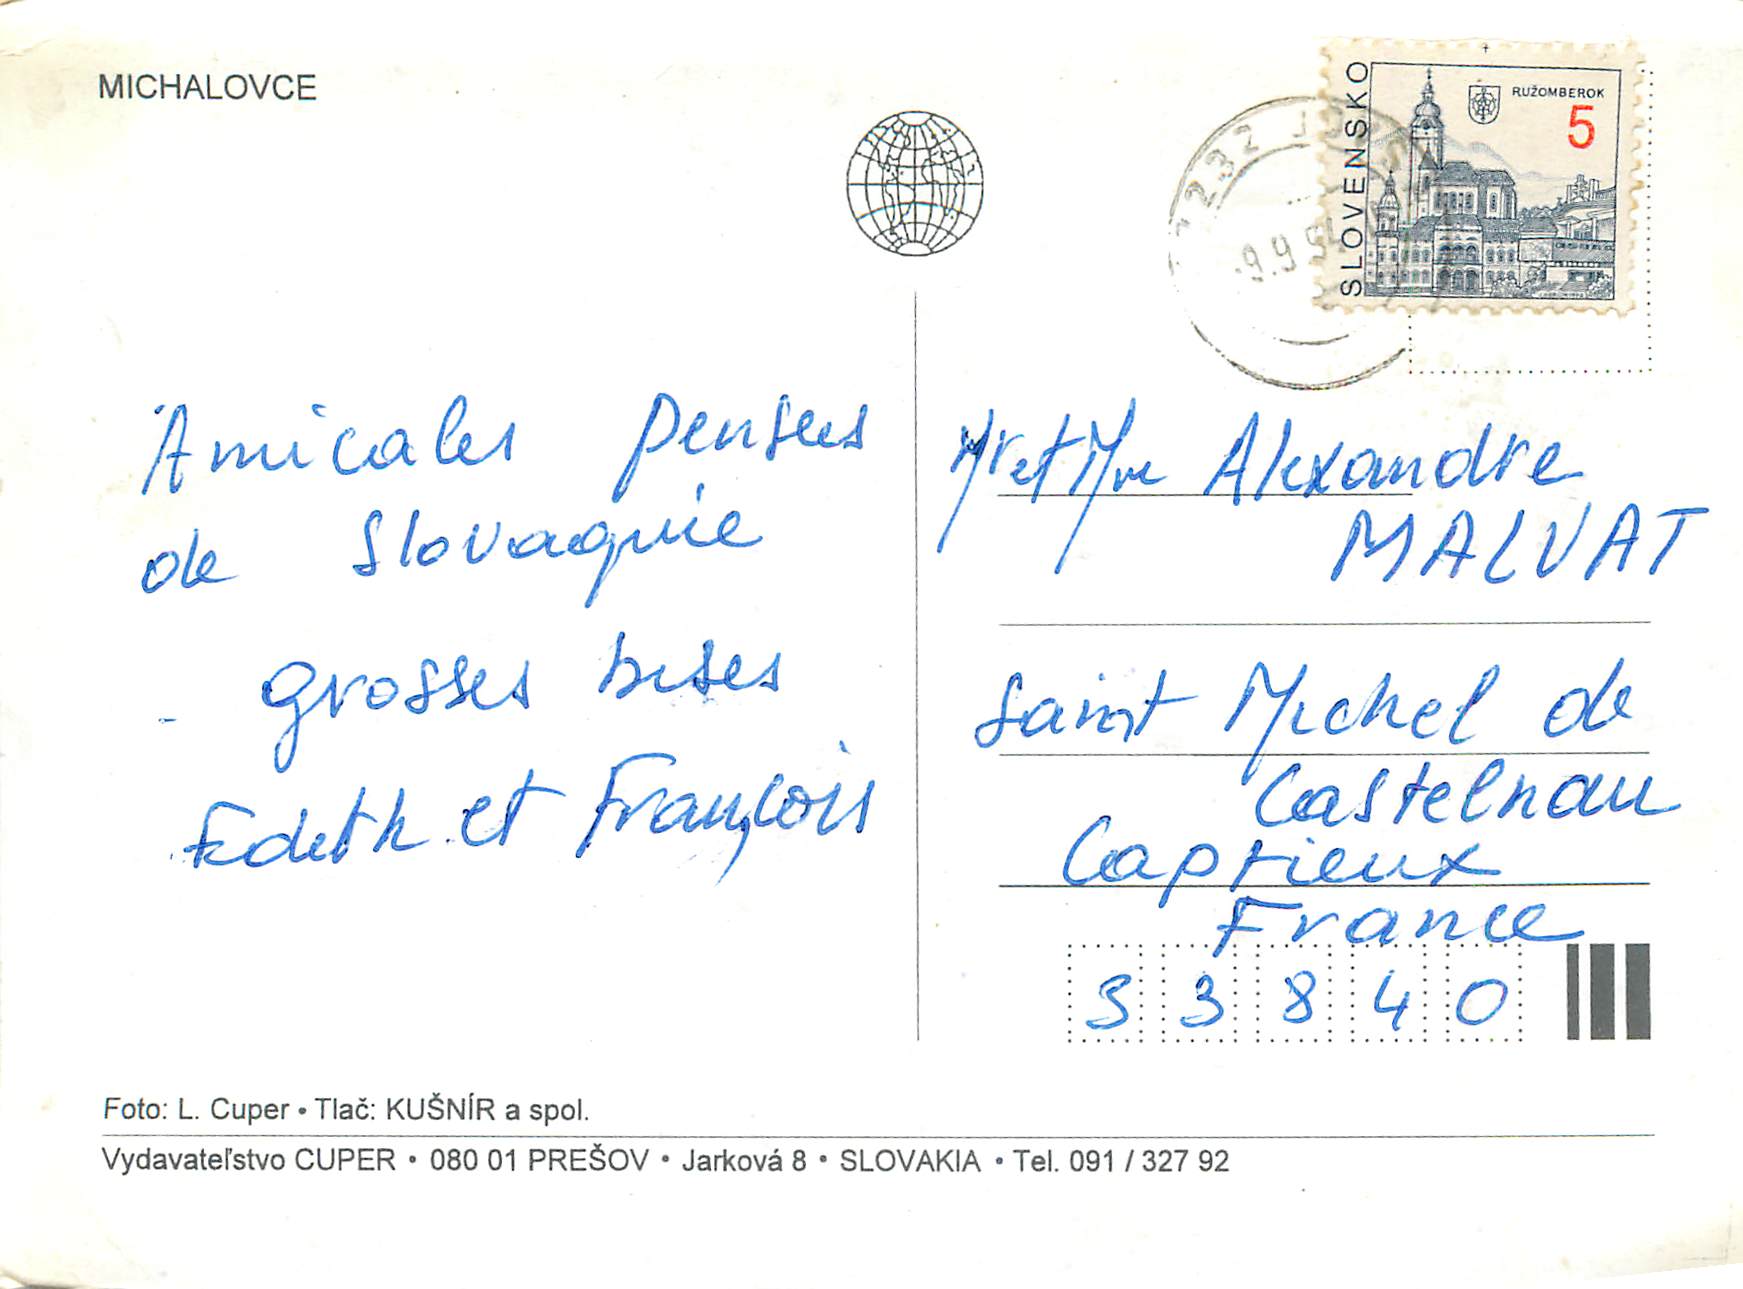 MICHALOVCE
SLOVENSKO
RUŽOMBEROK
5
Amicales pensées
de Slovaquie
grosses bises
Edith et François
Mr et Mme Alexandre
MALVAT
Saint Michel de
Castelnau
Captieux
France
33840
Foto: L. Cuper • Tlač: KUŠNÍR a spol.
Vydavateľstvo CUPER • 080 01 PREŠOV • Jarková 8 • SLOVAKIA • Tel. 091 / 327 92